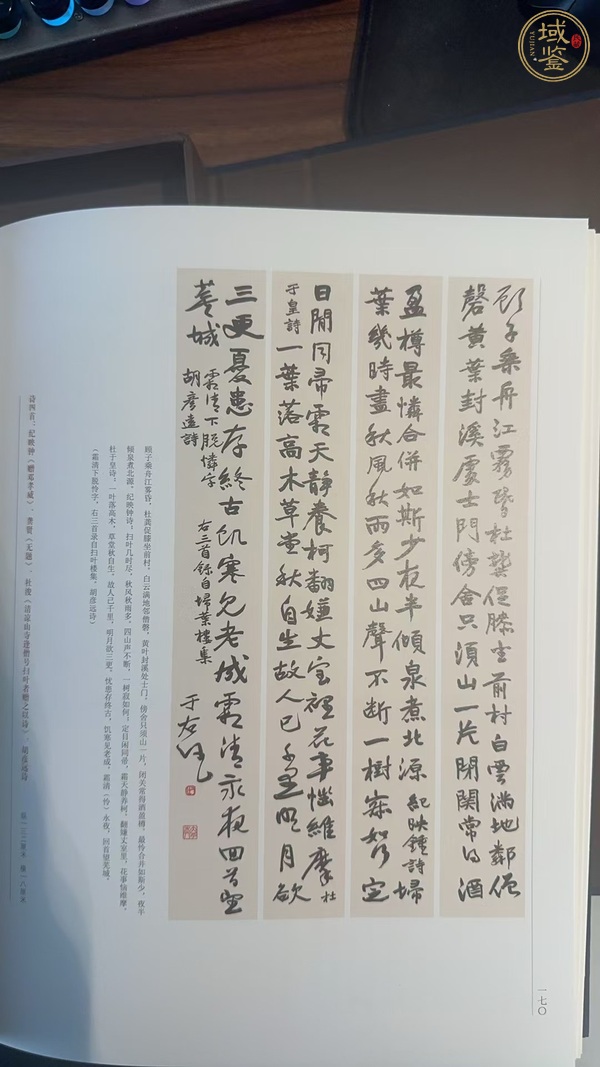 域鉴
YUJIAN
顧子乘舟江霧昏杜龔促膝坐前村白雲滿地鄰僧
磬黄葉封溪處士門傍舍只須山一片閉關常得酒
盈樽最憐合併如斯少夜半傾泉煮北源 紀映鍾詩 掃
葉幾時盡秋風秋雨多四山聲不斷一樹寂如何定
日閒同帚霜天靜養柯翻嫌丈室裡花事惱維摩 杜
于皇詩 一葉落高木草堂秋自生故人已千里明月欲
三更憂患存終古飢寒見老成霜清永夜回首望
蕪城 霜清下脱憐字 右三首錄自掃葉樓集
胡彦遠詩
于右任
顾子乘舟江雾昏，杜龚促膝坐前村，白云满地邻僧磬，黄叶封溪处士门，傍舍只须山一片，闭关常得酒盈樽，最怜合并如斯少，夜半
倾泉煮北源，纪映钟诗；扫叶几时尽，秋风秋雨多，四山声不断，一树寂如何；定日闲同帚，霜天静养柯，翻嫌丈室里，花事恼维摩，
杜于皇诗；一叶落高木，草堂秋自生，故人已千里，明月欲三更，忧患存终古，饥寒见老成，霜清（怜）永夜，回首望芜城，
（霜清下脱怜字，右三首录自扫叶楼集，胡彦远诗）
诗四首：纪映钟《赠邓孝威》、龚贤《无题》、杜濬《清凉山寺逢僧号扫叶者赠之以诗》、胡彦远诗
纵一三二厘米 横一八厘米
一七〇